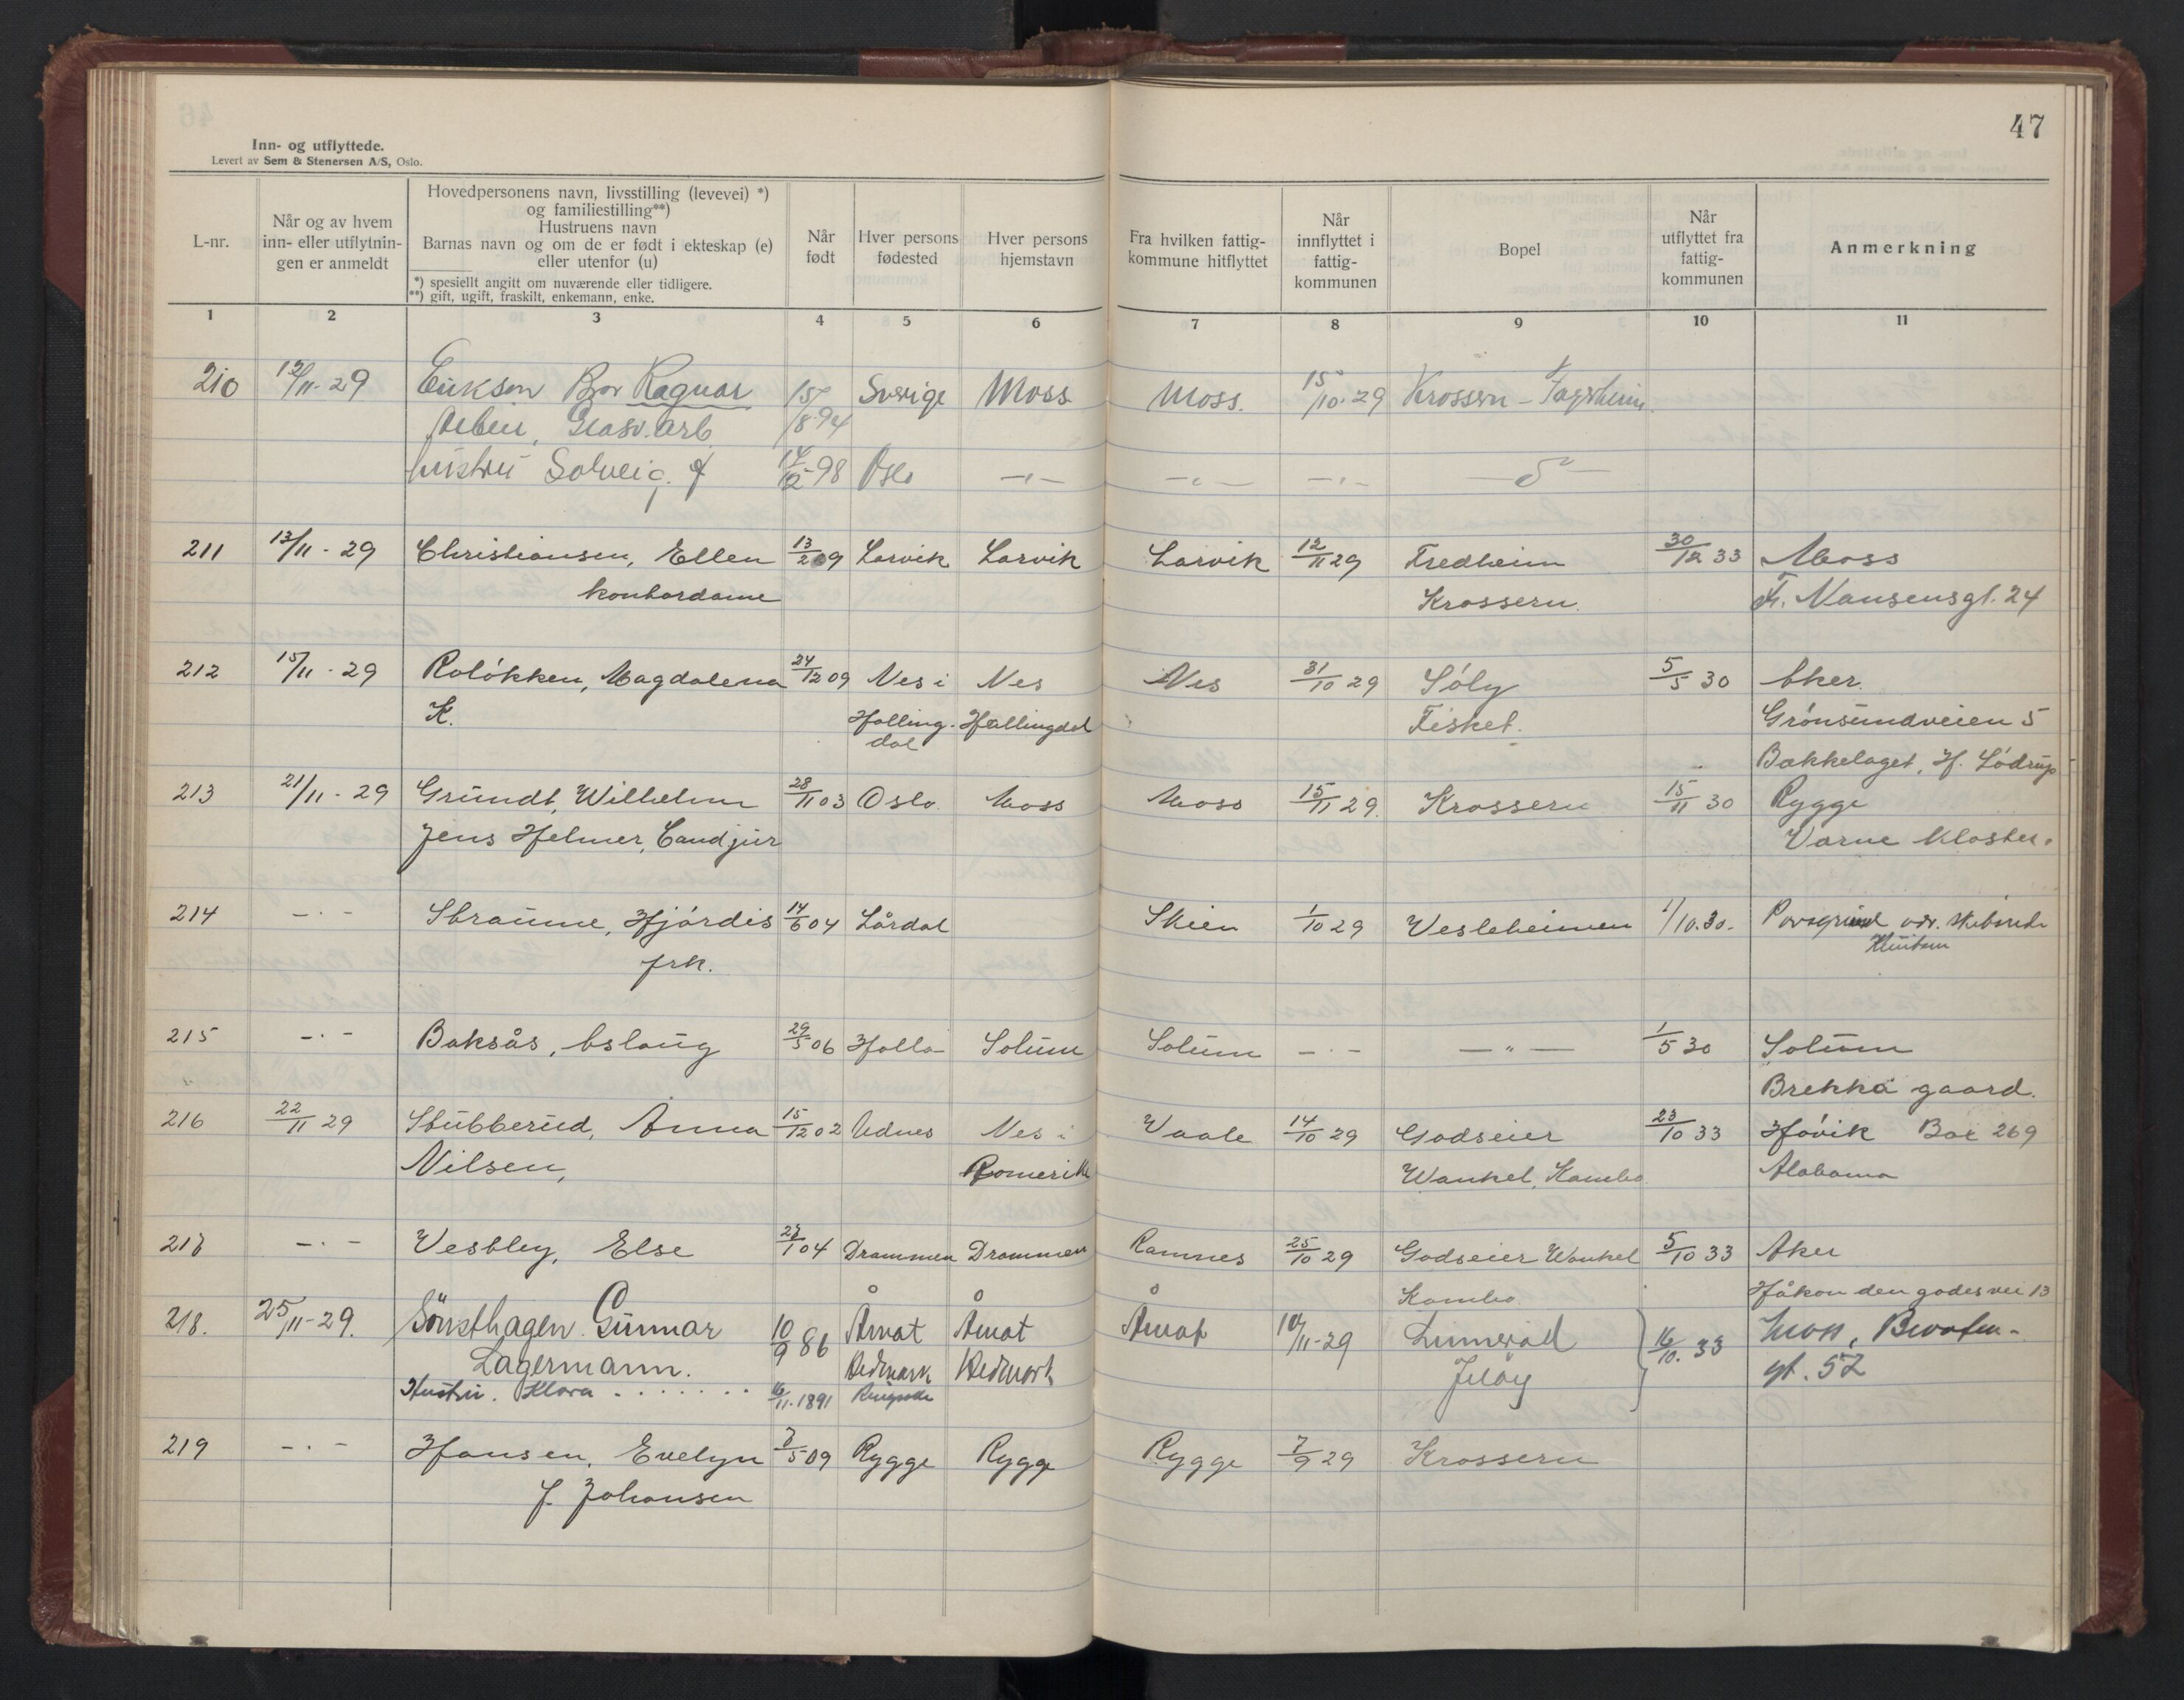 47
Inn- og utflyttede.
Levert av Sem & Stenersen A/S, Oslo.
L-nr.
Når og av hvem inn- eller utflytnin- gen er anmeldt
Hovedpersonens navn, livsstilling (levevei) *)
og familiestilling**)
Hustruens navn
Barnas navn og om de er født i ekteskap (e)
eller utenfor (u)
*) spesiellt angitt om nuværende eller tidligere.
**) gift, ugift, fraskilt, enkemann, enke.
Når født
Hver persons fødested
Hver persons hjemstavn
Fra hvilken fattig- kommune hitflyttet
Når innflyttet i fattig- kommunen
Bopel
Når utflyttet fra fattig- kommunen
Anmerkning
1 2 3 4 5 6 7 8 9 10 11
210 12/11-29 Erikson Bror Ragnar 15/8-94 Sverige Moss Moss. 15/10-29 Krossern - Fagerheim
Glasv. arb
hustru Solveig, f 14/12-98 Oslo -"- -"- -"-
211 13/11-29 Christiansen, Ellen 13/2 09 Larvik Larvik Larvik 12/11 29 Fredheim 30/12 33 Moss
kontordame Krossern. Fr. Nansensgt. 24
212 15/11-29 Roløkken, Magdalena 24/12 09 Nes i Nes Nes 31/10 29 Sóly 5/5 30 Aker.
K. Halling- Hallingdal Fisket. Grønsundveien 5
dal Bækkelaget, H. Lødrup
213 21/11-29 Grundt, Wilhelm 28/11 03 Oslo. Moss Moss 15/11 29. Krossern 15/11 30 Rygge
Jens Helmer, Cand jur Varne Kloster.
214 -"- Straume, Hjördis 14/6 04 Lårdal Skien 1/10 29 Vesleheimen 1/10.30. Porsgrund
frk.
215 -"- Baksås, Aslaug 29/5 06 Holla Solum Solum -"- -"- 1/5 30 Solum
Brekka gaard.
216 22/11 29 Stubberud, Anna 15/12 02 Udnes Nes i Vaale 14/10 29 Godseier 23/10 33 Hövik Box 269
Nilsen, Romerike Wankel, Kambo Alabama
217 -"- Vestbly, Else 27/1 04 Drammen Drammen Ramnes 25/10 29 Godseier Wankel 5/10 33 Aker
Kambo. Håkon den godes vei 13
218. 25/11-29. Sönsthagen Gunnar 10/9 86 Åmot Åmot Åmot 10/11-29 Limerød 16/10. 33 Moss,
Lagermann. Hedmark Hedmark Jelöy gt. 52
Hustru. Klara . . . . . . . 16/11.1891
219 -"- Hansen, Evelyn 7/5 09 Rygge Rygge Rygge 7/9 29 Krossern
f. Johansen